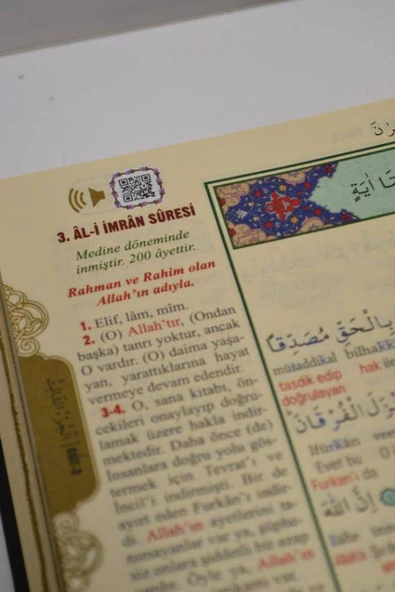 3. ÂL-İ İMRÂN SÛRESİ
Medine döneminde
inmiştir. 200 âyettir.
Rahman ve Rahim olan
Allah'ın adıyla.
1. Elif, lâm, mîm.
2. (O) Allah'tır, (Ondan
başka) tanrı yoktur, ancak
O vardır. (O) daima yaşa-
yan, yarattıklarına hayat
vermeye devam edendir.
3-4. O, sana kitabı, ön-
cekileri onaylayıp doğru-
lamak üzere hakla indir-
mektedir. Daha önce (de)
İnsanlara doğru yolu gös-
termek için Tevrat'ı ve
İncil'i indirmişti. Bir de
ayırt eden Furkân'ı indir-
di. Allah'ın ayetlerini ta-
nımayanlar var ya, şüphe-
siz onlara şiddetli bir azap
vardır. Öyle ya, Allah'ın
بِالْحَقِّ مُصَدِّقًا
müṡaddikal bilhaKK
tasdik edip hak ile
doğrulayan
Evet bu
Furkan'ı da
اِنَّ اللّٰهَ